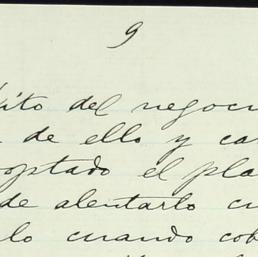 9
ito del negoc
de ello y ca
optado el pla
de alentarlo cu
lo cuando cob